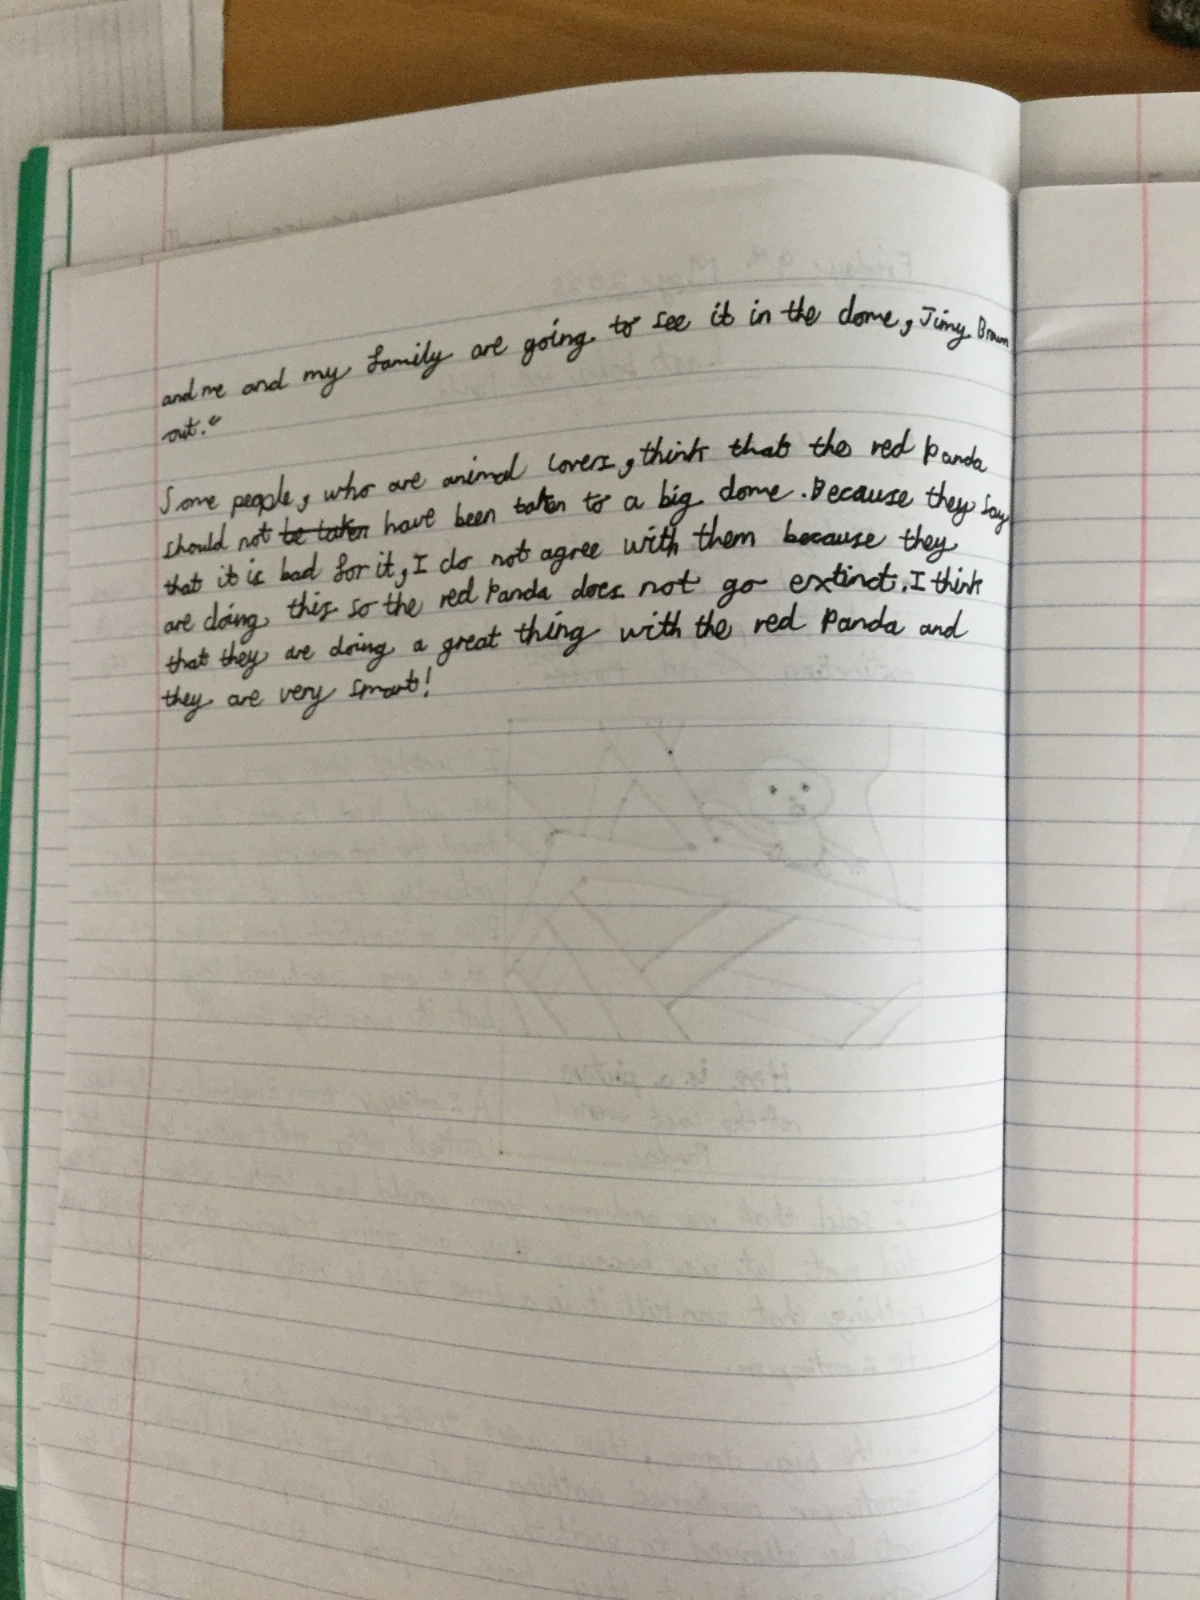 and me and my family are going to see it in the dome, Jimy Brown
out."
Some people, who are animal lovers, think that the red Panda
should not be taken have been taken to a big dome. Because they say
that it is bad for it, I do not agree with them because they
are doing this so the red Panda does not go extinct. I think
that they are doing a great thing with the red Panda and
they are very smart!